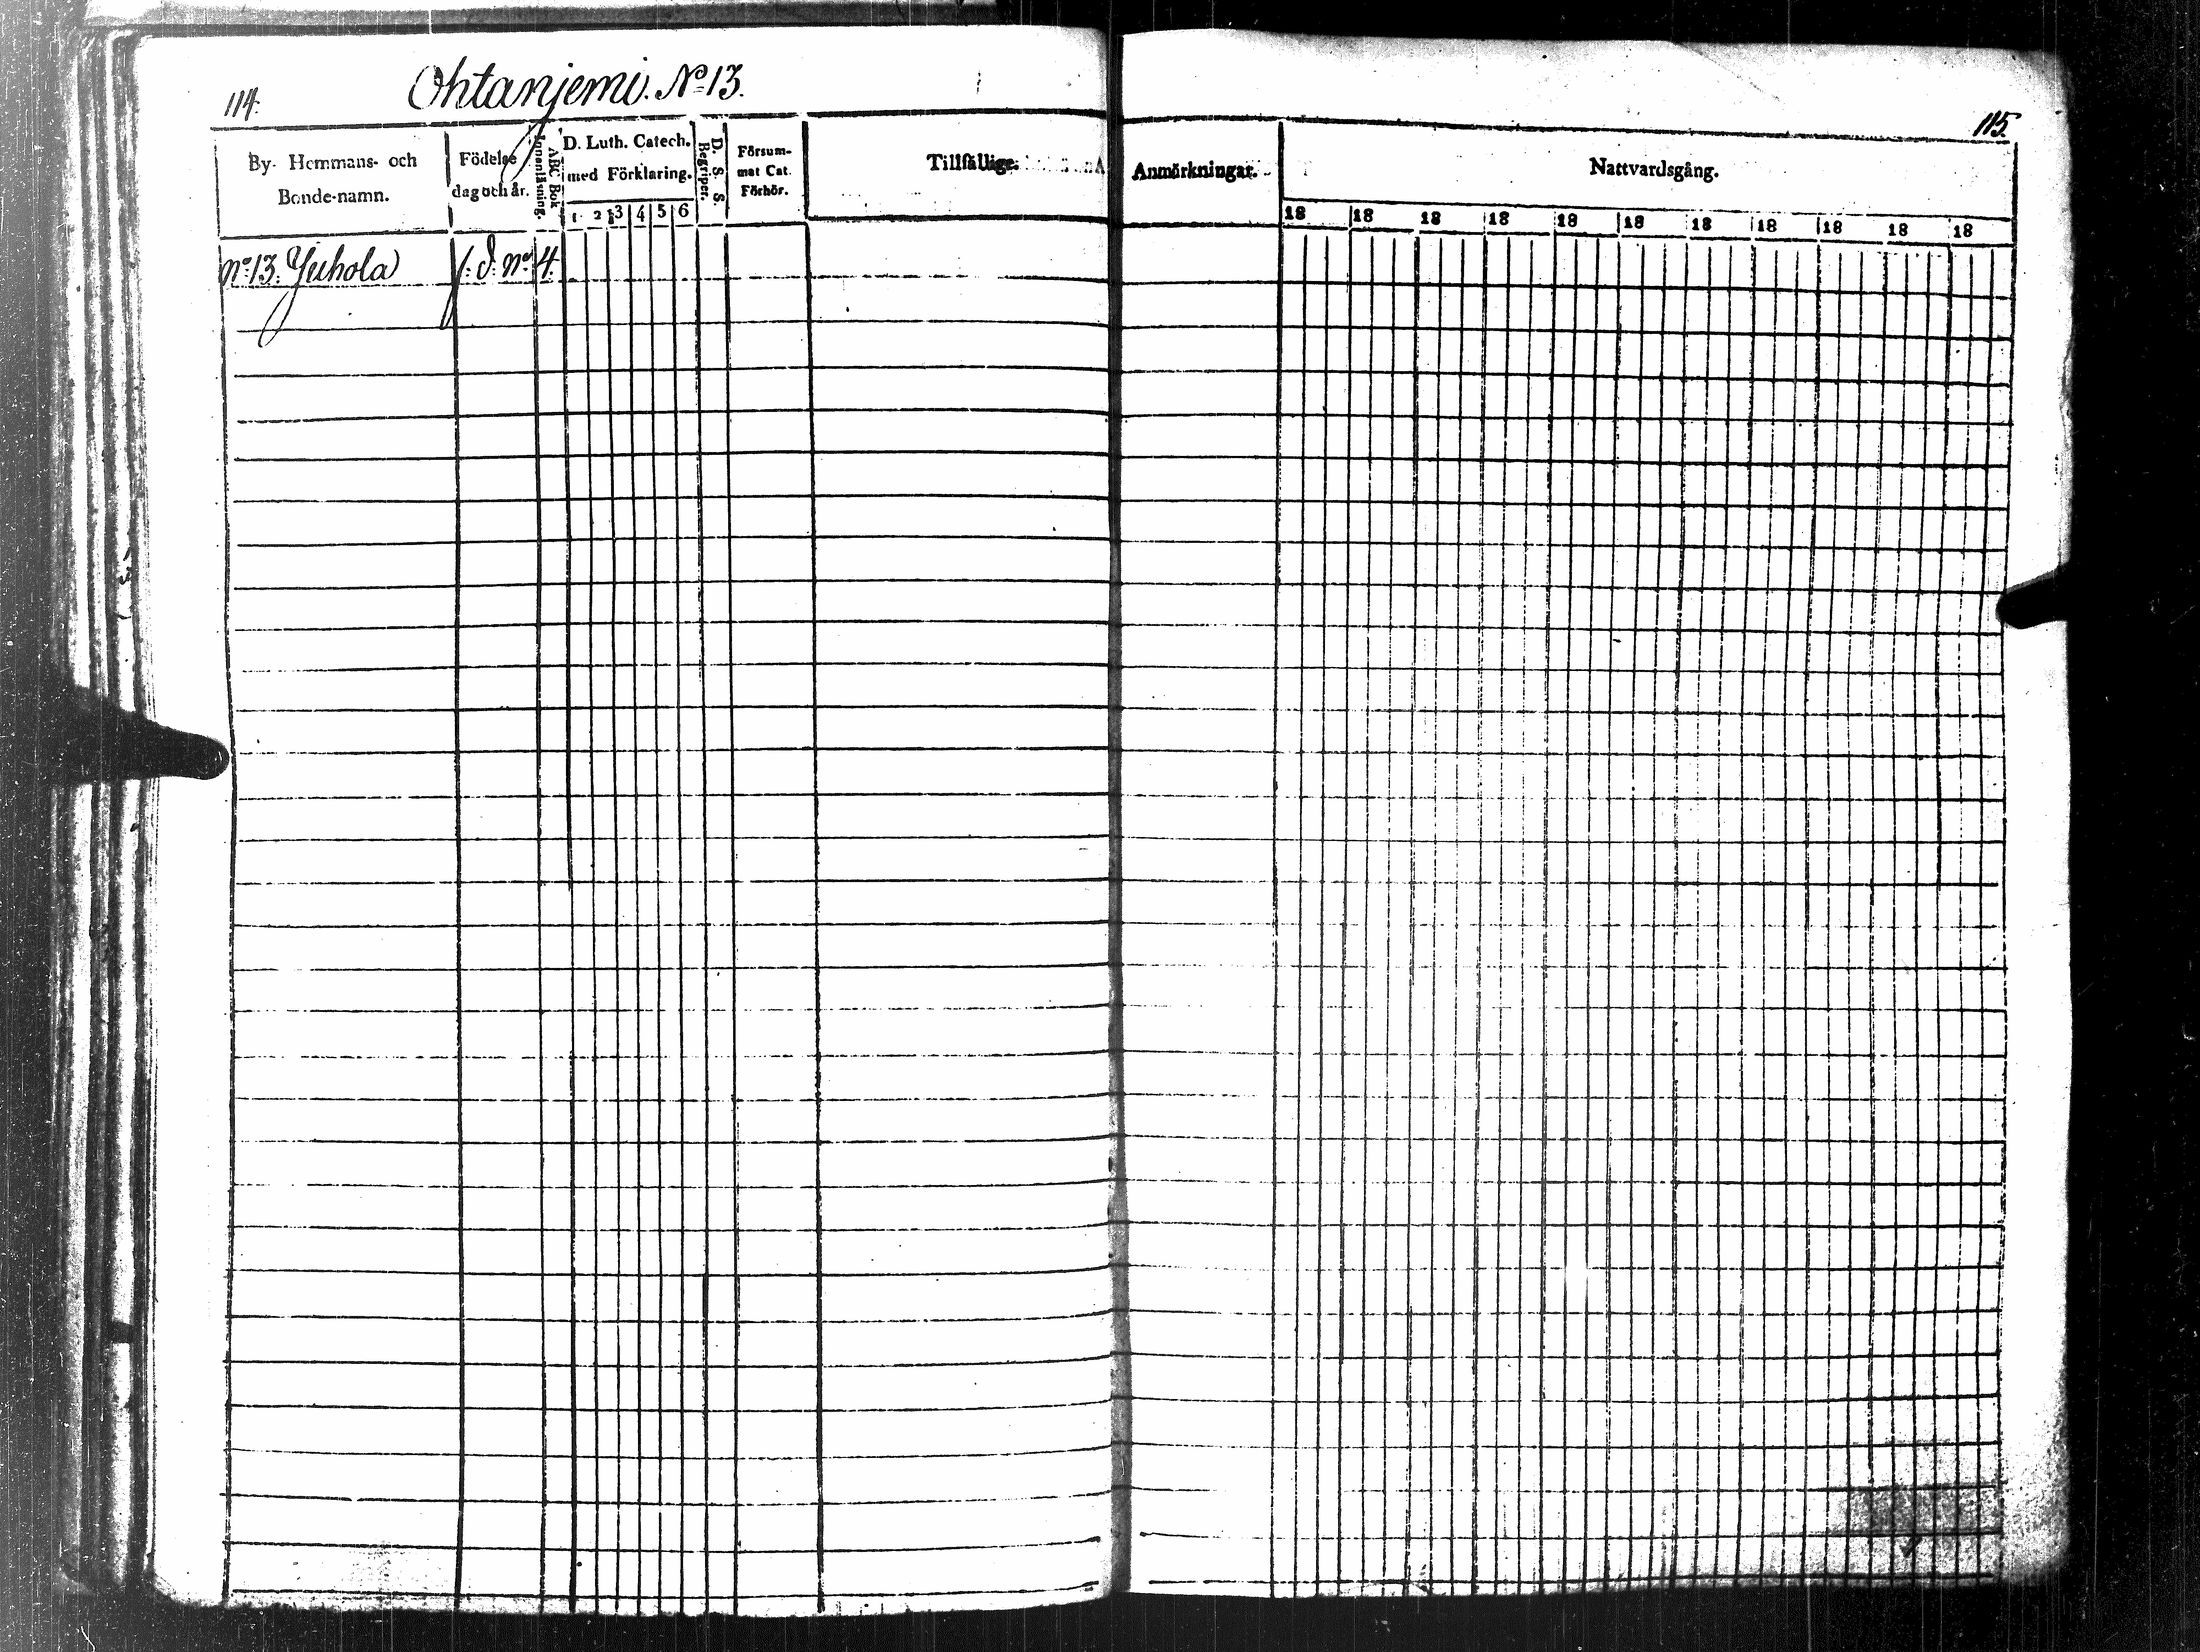 114.
Ohtanjemi. No 13.
115.
By- Hemmans- och
Bonde-namn.
Födelse
dag och år.
Innanläsning.
ABC Bok
D. Luth. Catech.
med Förklaring.
1 2 3 4 5 6
D. S. S.
Begriper.
Försum-
mat Cat.
Förhör.
Tillfällige
Anmärkningar.
Nattvardsgång.
18 18 18 18 18 18 18 18 18 18 18
No 13. Juhola
f. d. No 4.